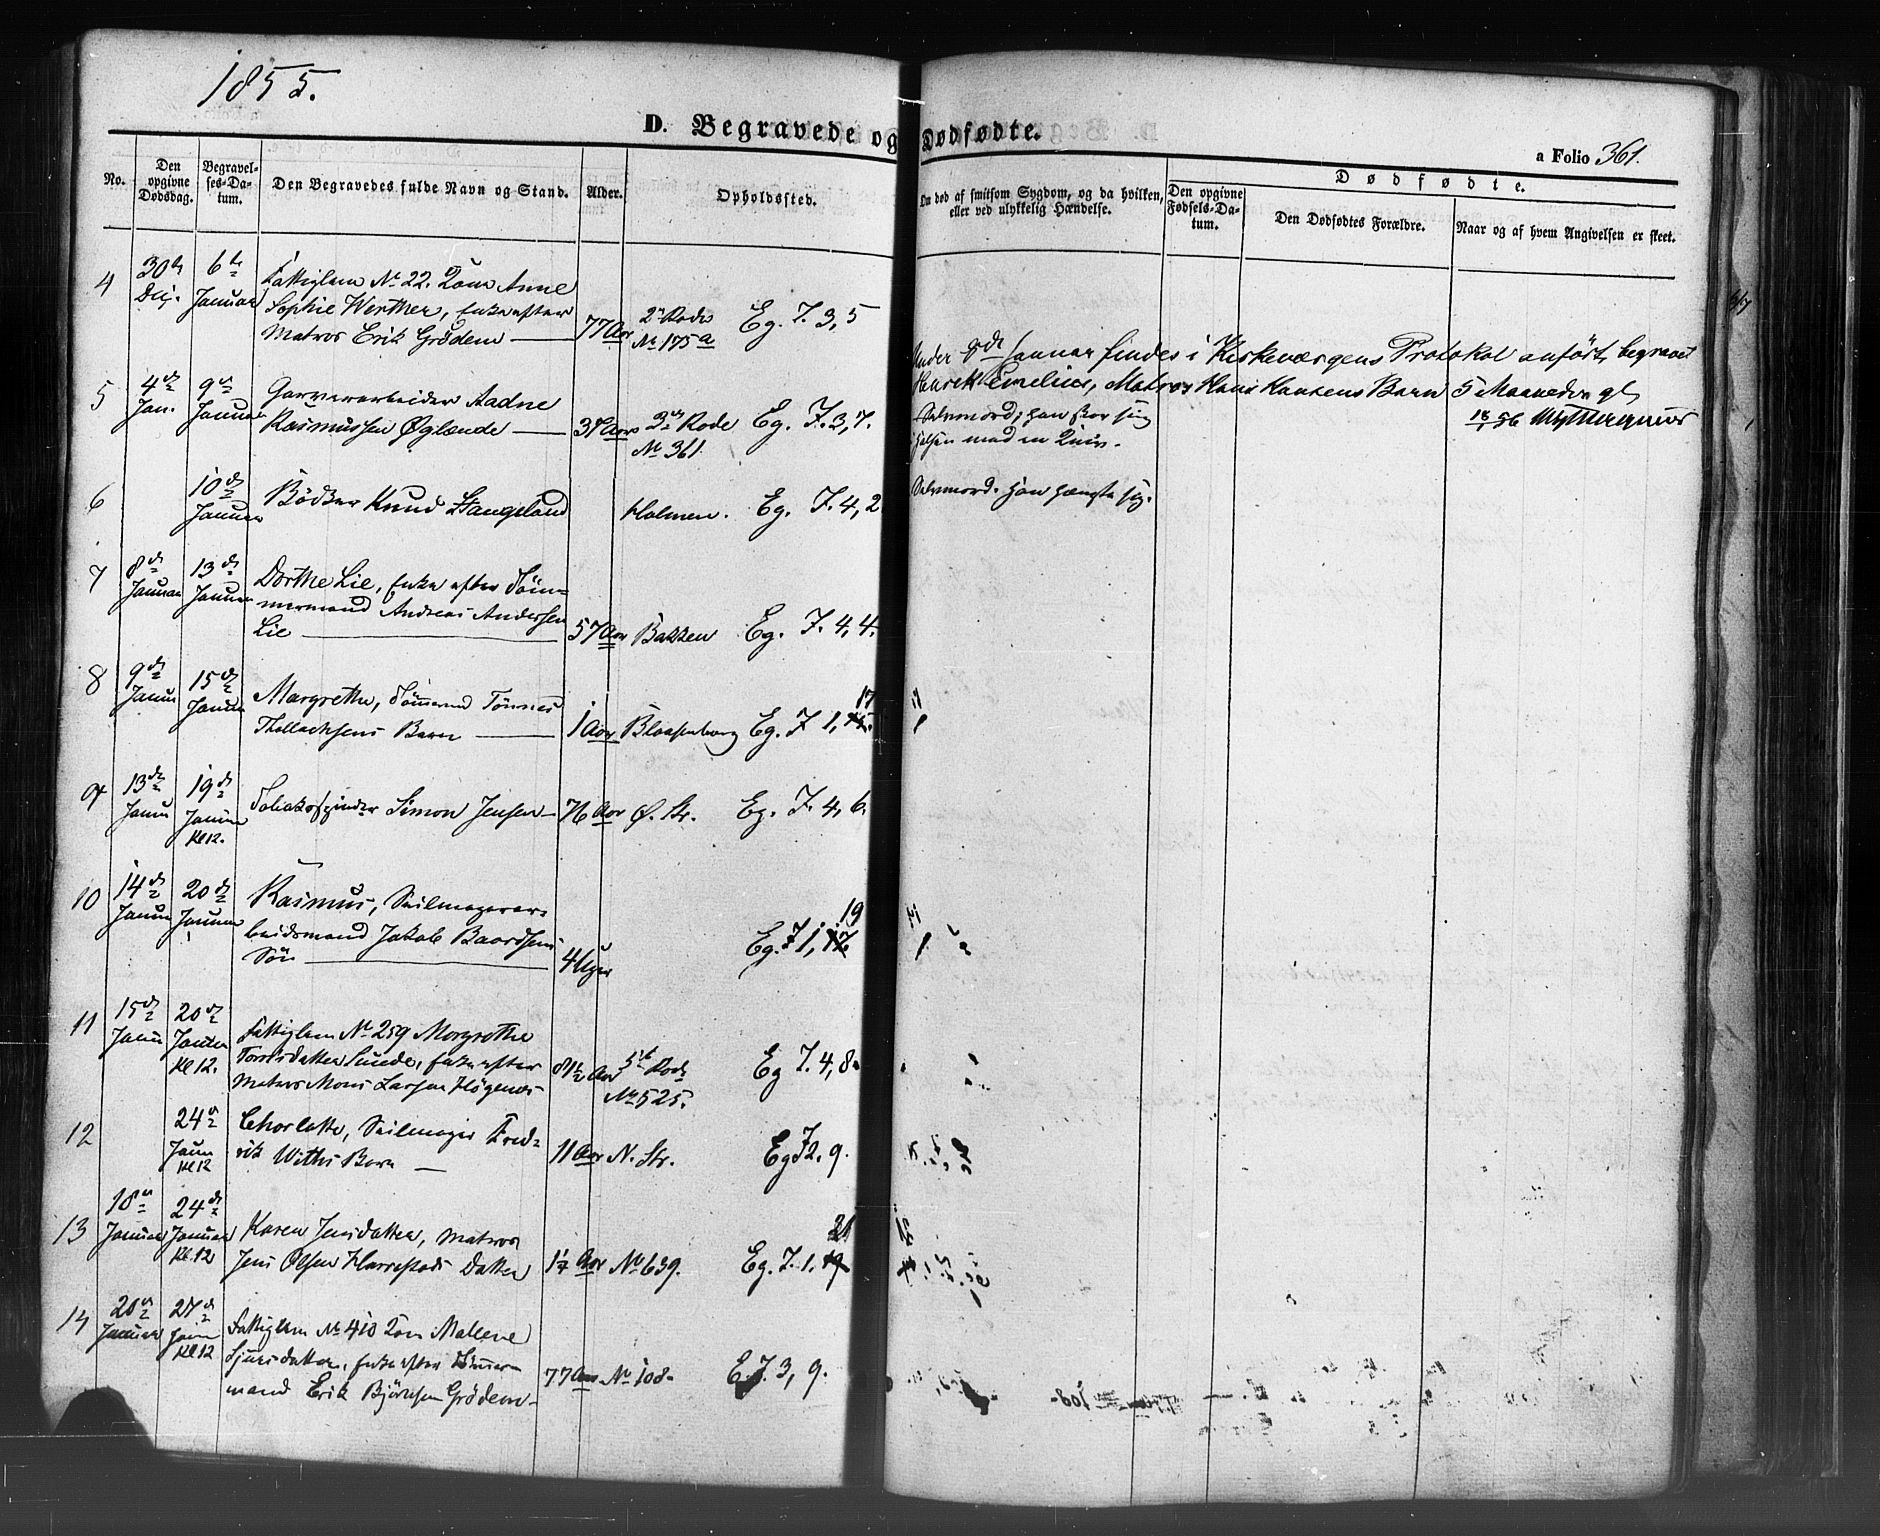 1855.
D. Begravede og Dødfødte.
a Folio 361.
No.
Den opgivne Dødsdag.
Begravelses-Datum.
Den Begravedes fulde Navn og Stand.
Alder.
Opholdssted.
Om død af smitsom Sygdom, og da hvilken, eller ved ulykkelig Hændelse.
Dødfødte.
Den opgivne Fødsels-Datum.
Den Dødfødtes Forældre.
Naar og af hvem Angivelsen er skeet.
4
30te Dec.
6te Januar
Fattiglem No 22. Anne
Sophie Werther, Enke efter
Matros Erik Grødem
77 Aar
2den Rode
No 175a
Eg. J. 3, 5
5
4de Jan.
9de Januar
Garverarbeider Aadne
Rasmussen Øglænde
Aar
3die Rode
No 361
Eg. J. 3, 7.
Under 9de Januar findes i Kirkeværgens Protokol anført, begravet
Emelius, Matros Hans Hansens Barn 5 Maaneder gl
Selvmord; han skar sig
Halsen med en Kniv.
6
10de Januar
Bødker Knud Stangeland
Holmen.
Eg. J. 4, 2
Selvmord. Han hængte sig.
7
8de Januar
13de Januar
Dorthe Lie, Enke efter Tøm-
mermand Andreas Andersen
Lie
57 Aar
Bakken
Eg. J. 4, 4.
8
9de Januar
15de Januar
Margrethe, Tømmermd Tønnes
Thollachsens Barn
1 Aar
Blaasenborg
Eg. J 1, 17
9
13de Januar
19de Januar
Kl 12.
Tobakspinder Simon Jensen
76 Aar
Ø. Str.
Eg. J. 4, 6.
10
14de Januar
20de Januar
Rasmus, Seilmagerar-
beidsmand Jakob Baardsens
Søn
4 Uger
Eg. J 1, 19
11
15de Januar
20de Januar
Kl 12.
Fattiglem No 259 Margrethe
Torrisdatter Sunde, Enke efter
Matros Mons Larsen Høgenæs
81½ Aar
5te Rode
No 525.
Eg J. 4, 8.
12
24de Januar
Kl 12
Charlotte, Seilmager Fred-
rik Withs Barn
11 Aar
N. Str.
Eg J 2. 9.
13
18de Januar
24de Januar
Kl. 12
Karen Jensdatter, Matros
Jens Olsen Harrestads Datter
Aar
No 639.
Eg. J. 1. 21
14
20de Januar
27de Januar
Kl 12
Fattiglem No 410 Malene
Sjursdatter, Enke efter Tømmer-
mand Erik Bjørnsen Grødem
77 Aar
No 108
E. J. 3, 9.